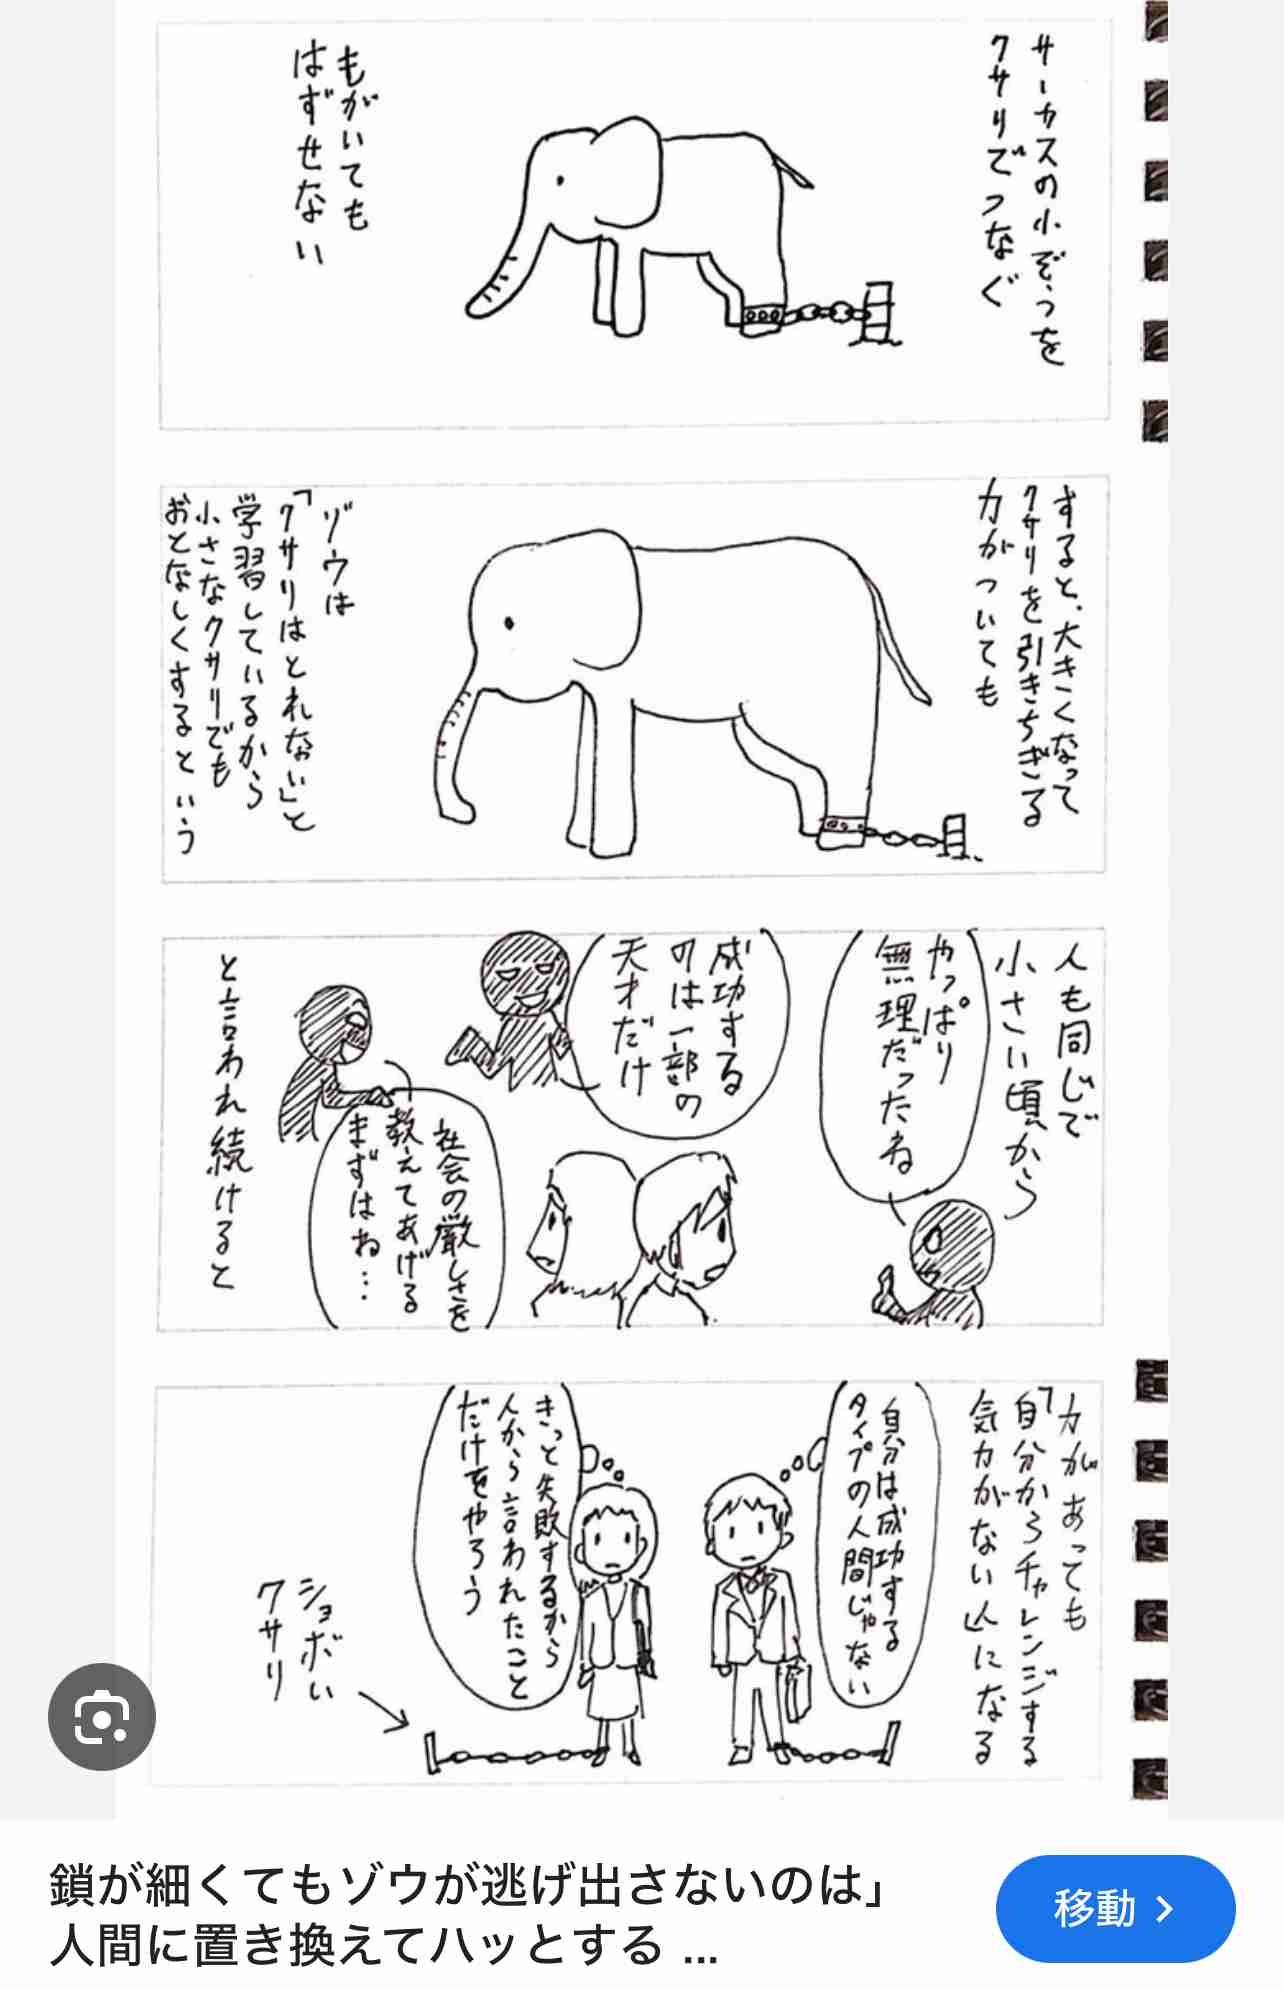 サーカスの小ぞうを
クサリでつなぐ
もがいても
はずせない
すると、大きくなって
クサリを引きちぎる
力がついても
ゾウは
「クサリはとれない」と
学習しているから
小さなクサリでも
おとなしくするという
人も同じで
小さい頃から
やっぱり
無理だったね
成功する
のは一部の
天才だけ
社会の厳しさを
教えてあげる
まずはね…
と言われ続けると
力があっても
「自分からチャレンジする
気力がない人」になる
自分は成功する
タイプの人間じゃない
きっと失敗するから
人から言われたこと
だけをやろう
ショボい
クサリ
鎖が細くてもゾウが逃げ出さないのは」
人間に置き換えてハッとする ...
移動